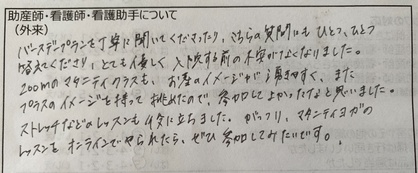 助産師・看護師・看護助手について
(外来)
バースデープランを丁寧に聞いてくださったり、こちらの質問にもひとつ、ひとつ
答えてくださり、とても優しく入院する前の不安がなくなりました。
zoomのマタニティクラスも、お産のイメージが湧きやすく、また
プラスのイメージを持って挑めたので、参加してよかったなと思いました。
ストレッチなどのレッスンも役に立ちました。がっつり、マタニティヨガの
レッスンもオンラインでやられたら、ぜひ参加してみたいです。